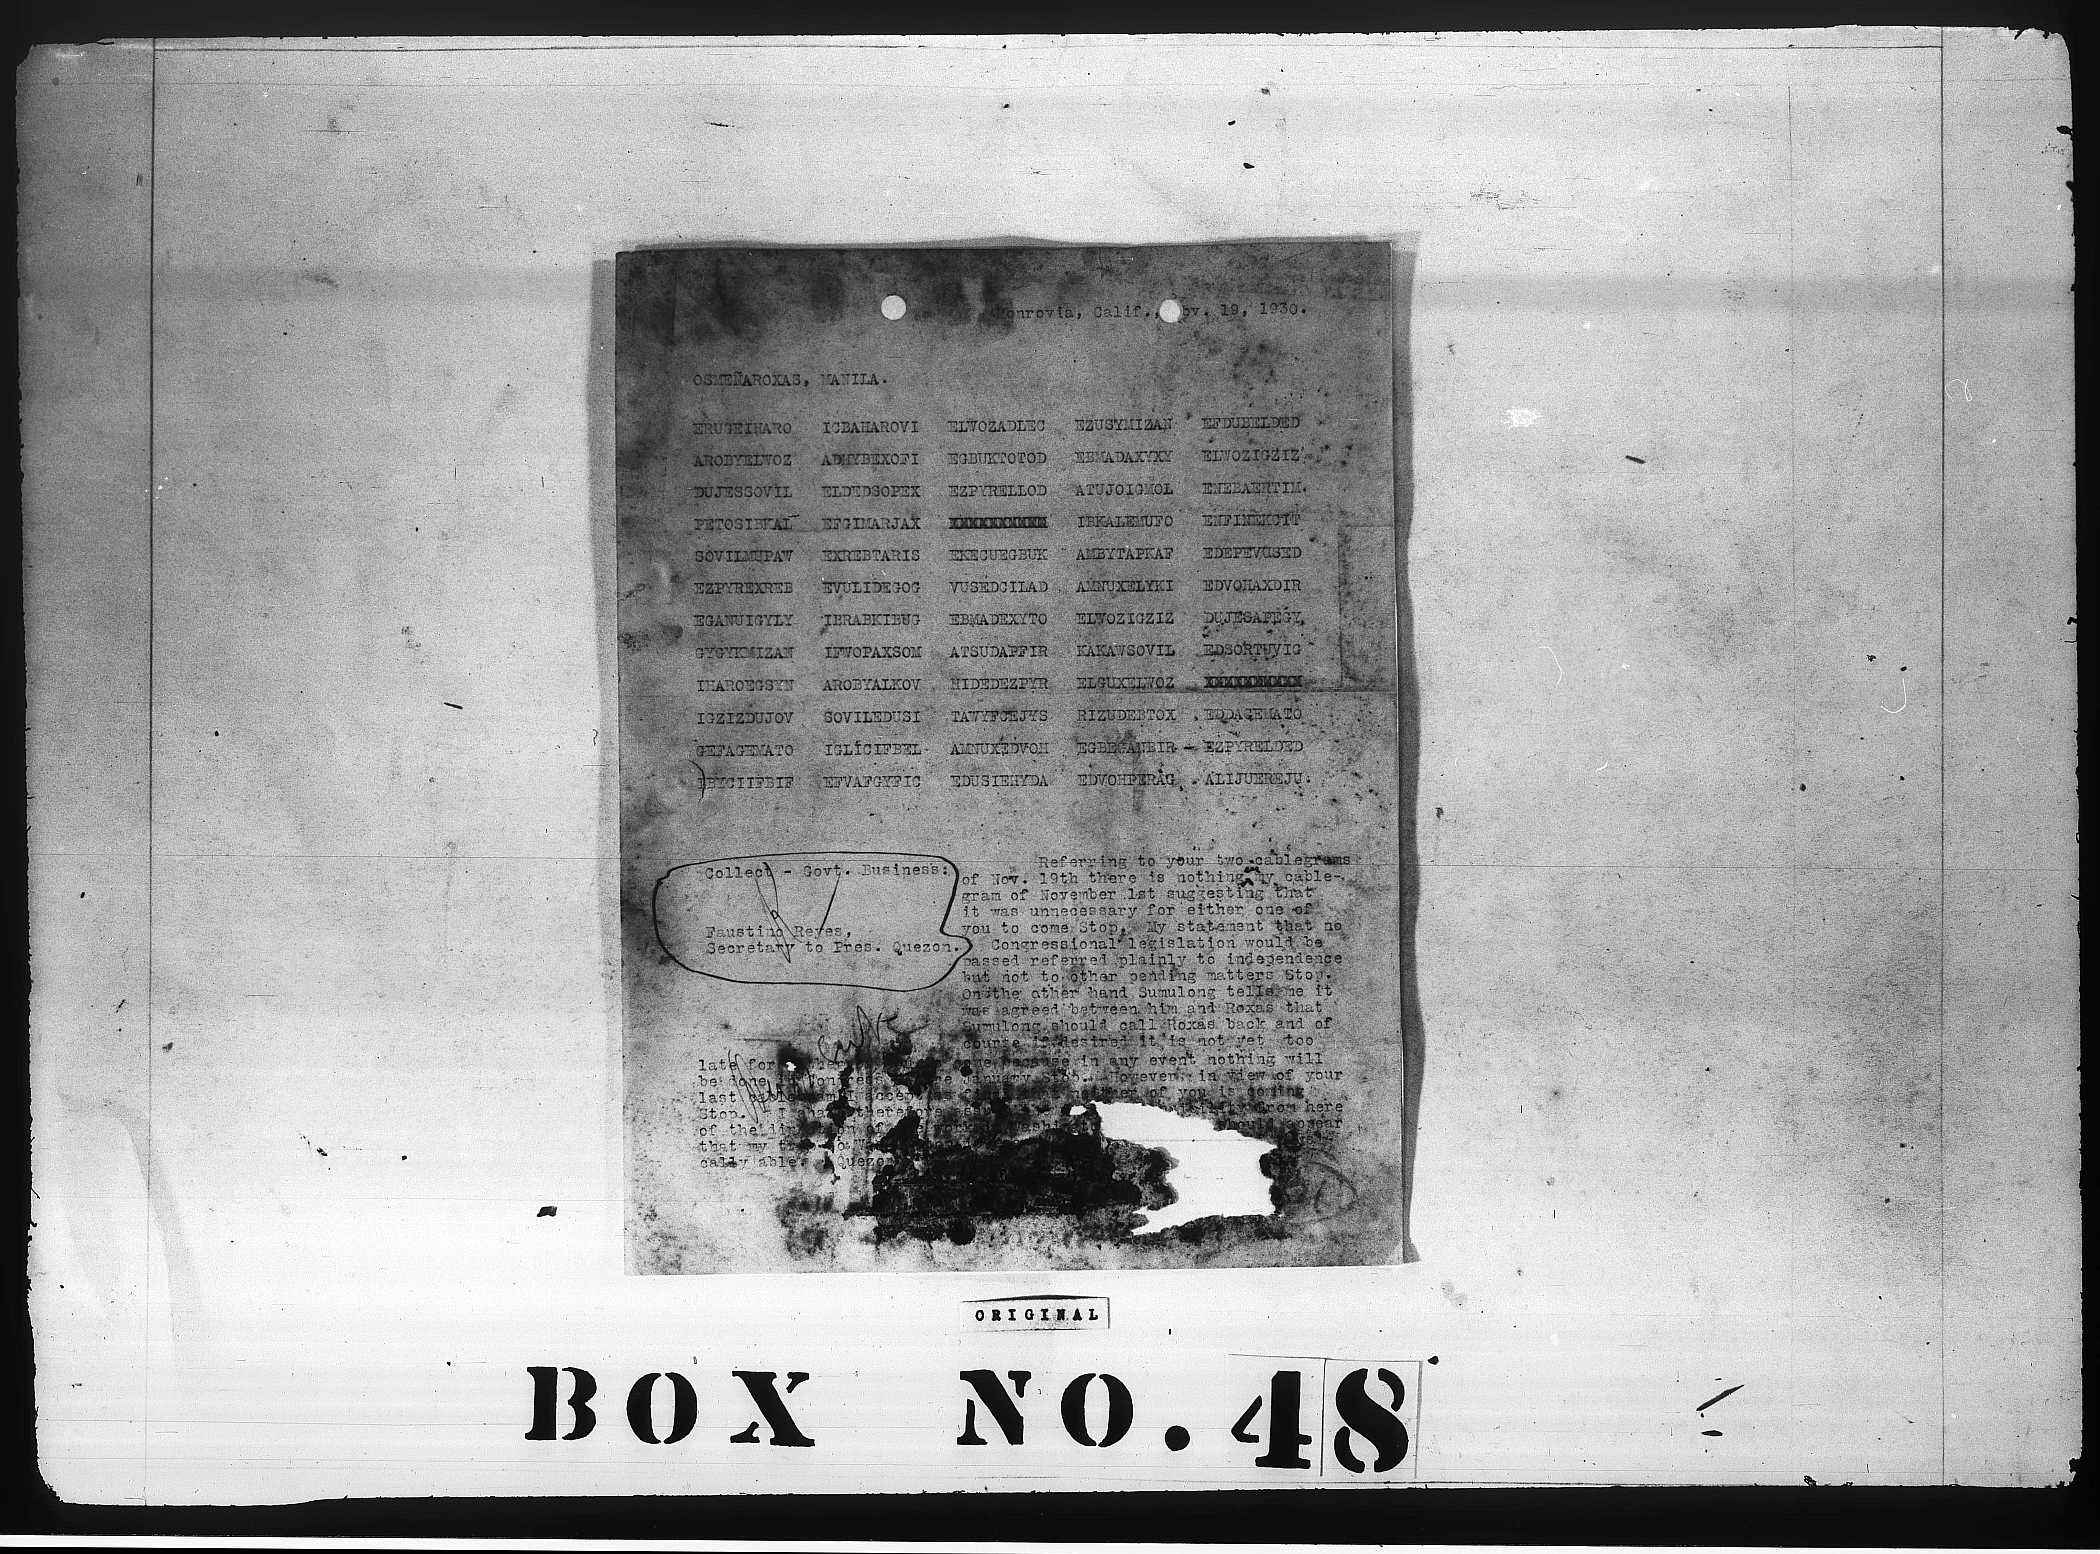 Monrovia, Calif., Nov. 19, 1930.
OSMEÑAROXAS, MANILA.
ERUGEIHARO ICBAHAROVI ELWOZADLEC EZUSYMIZAN EFDUBELDED
AROBYELWOZ ADMYBEXOFI EGBUKTOTOD EBMADAXYXY ELWOZIGZIZ
DUJESSOVIL ELDEDSOPEX EZPYRELLOD ATUJOIGMOL ENEBAERTIM
PETOSIBKAL EFGIMARJAX XXXXXXXXXX IBKALEMUFO ENFINEKCIT
SOVILMUPAW EXREBTARIS EKECUEGBUK AMBYTAPKAF EDEPEVUSED
EZPYREXREB EVULIDEGOG VUSEDCILAD AMNUXELYKI EDVOHAXDIR
EGANUIGYLY IBRABKIBUG EBMADEXYTO ELWOZIGZIZ DUJESAFEGY
GYGYKMIZAN IFWOPAXSOM ATSUDAPFIR KAKAWSOVIL EDSORTUVIG
IHAROEGSYN AROBYALKOV HIDEDEZPYR ELGUXELWOZ XXXXXXXXXX
IGZIZDUJOV SOVILEDUSI TAWYFCEJYS RIZUDEBTOX EDDAGEMATO
GEFAGEMATO IGLICIFBEL AMNUXEDVOH EGBEGANBIR EZPYRELDED
EBYCIIFBIF EFVAFGYFIC EDUSIEHYDA EDVOHPERAG ALIJUEREJU.
Collect - Govt. Business:
Faustino Reyes,
Secretary to Pres. Quezon.
Referring to your two cablegrams
of Nov. 19th there is nothing my cable-
gram of November 1st suggesting that
it was unnecessary for either one of
you to come Stop. My statement that no
Congressional legislation would be
passed referred plainly to independence
but not to other pending matters Stop.
On the other hand Sumulong tells me it
was agreed between him and Roxas that
Sumulong should call Roxas back and of
course if desired it is not yet too
late for because in any event nothing will
be done in Congress January Stop. However in view of your
last cablegram I accept neither of you is coming
Stop. I shall therefore from here
of the direction of should appear
that my
cally able. Quezon
ORIGINAL
BOX NO. 48